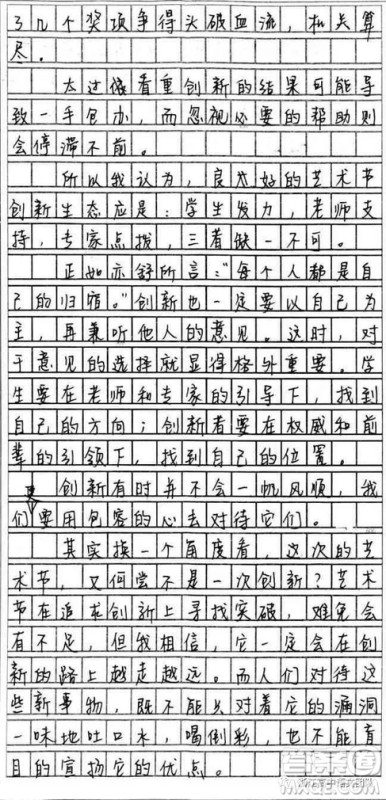 了几个奖项争得头破血流，机关算
尽。
太过像看重创新的结果可能导
致一手包办，而忽视必要的帮助则
会停滞不前。
所以我认为，良好的艺术节
创新生态应是：学生发力，老师支
持，专家点拨，三者缺一不可。
正如亦舒所言："每个人都是自
己的归宿。"创新也一定要以自己为
主，再兼听他人的意见。这时，对
于意见的选择就显得格外重要。学
生要在老师和专家的引导下，找到
自己的方向；创新者要在权威和前
辈的引领下，找到自己的位置。
创新有时并不会一帆风顺，我
们更要用包容的心去对待它们。
其实换一个角度看，这次的艺
术节，又何尝不是一次创新？艺术
节在追求创新上寻找突破，难免会
有不足，但我相信，它一定会在创
新的路上越走越远。而人们对待这
些新事物，既不能只对着它的漏洞
一味地吐口水，喝倒彩，也不能盲
目的宣扬它的优点。
MXQE.COM